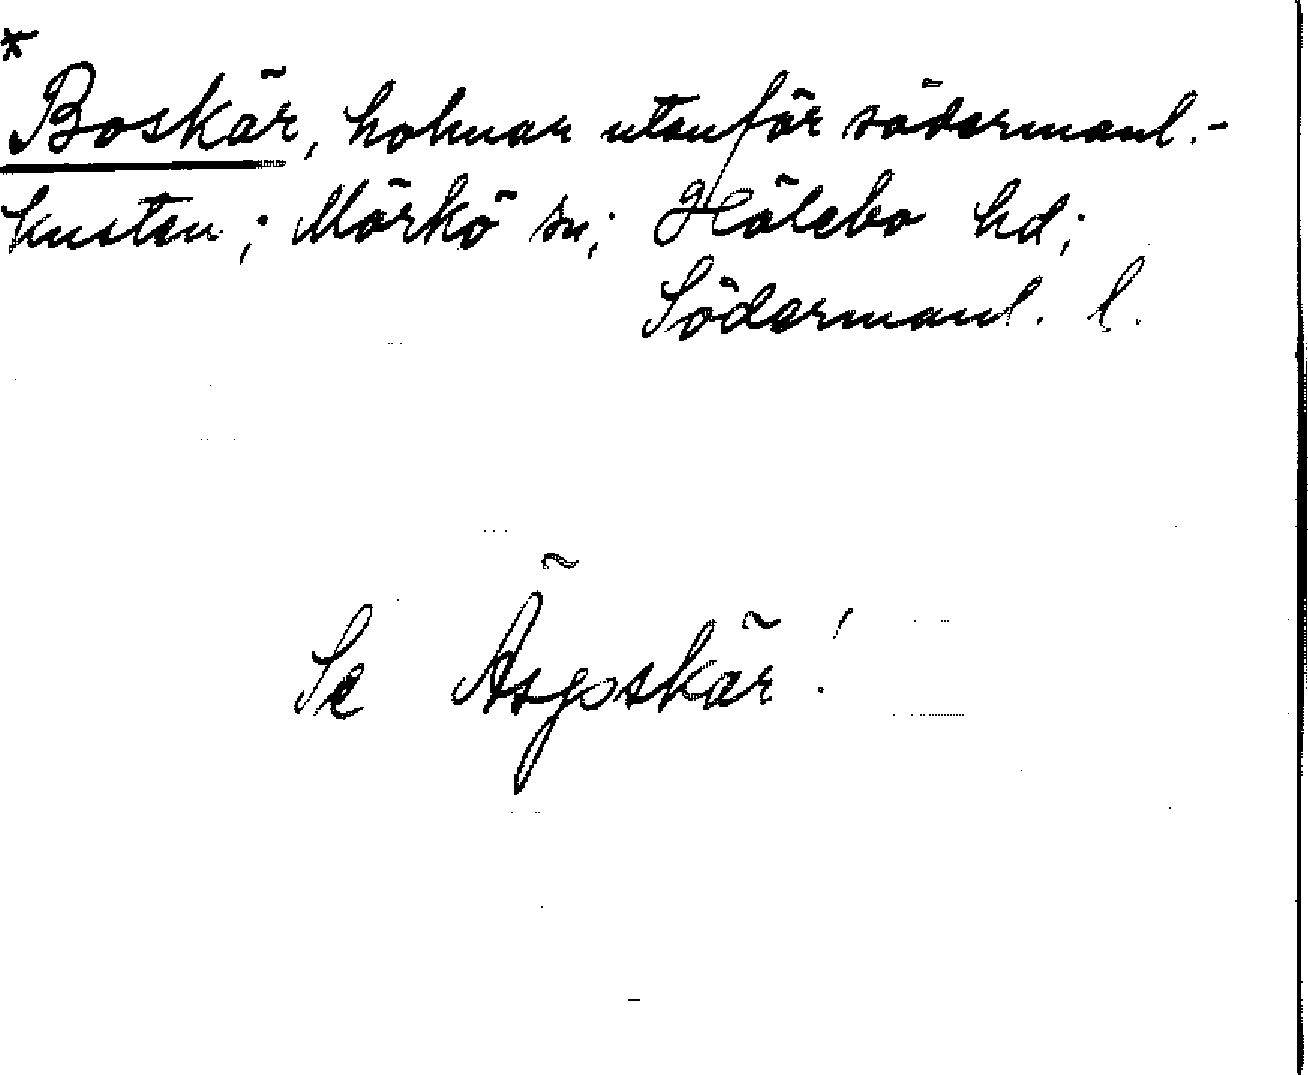 *
Boskär, holmar utanför södermanl.-
kusten; Mörkö sn; Hölebo hd;
Södermanl. l.
Se Äsgoskär!